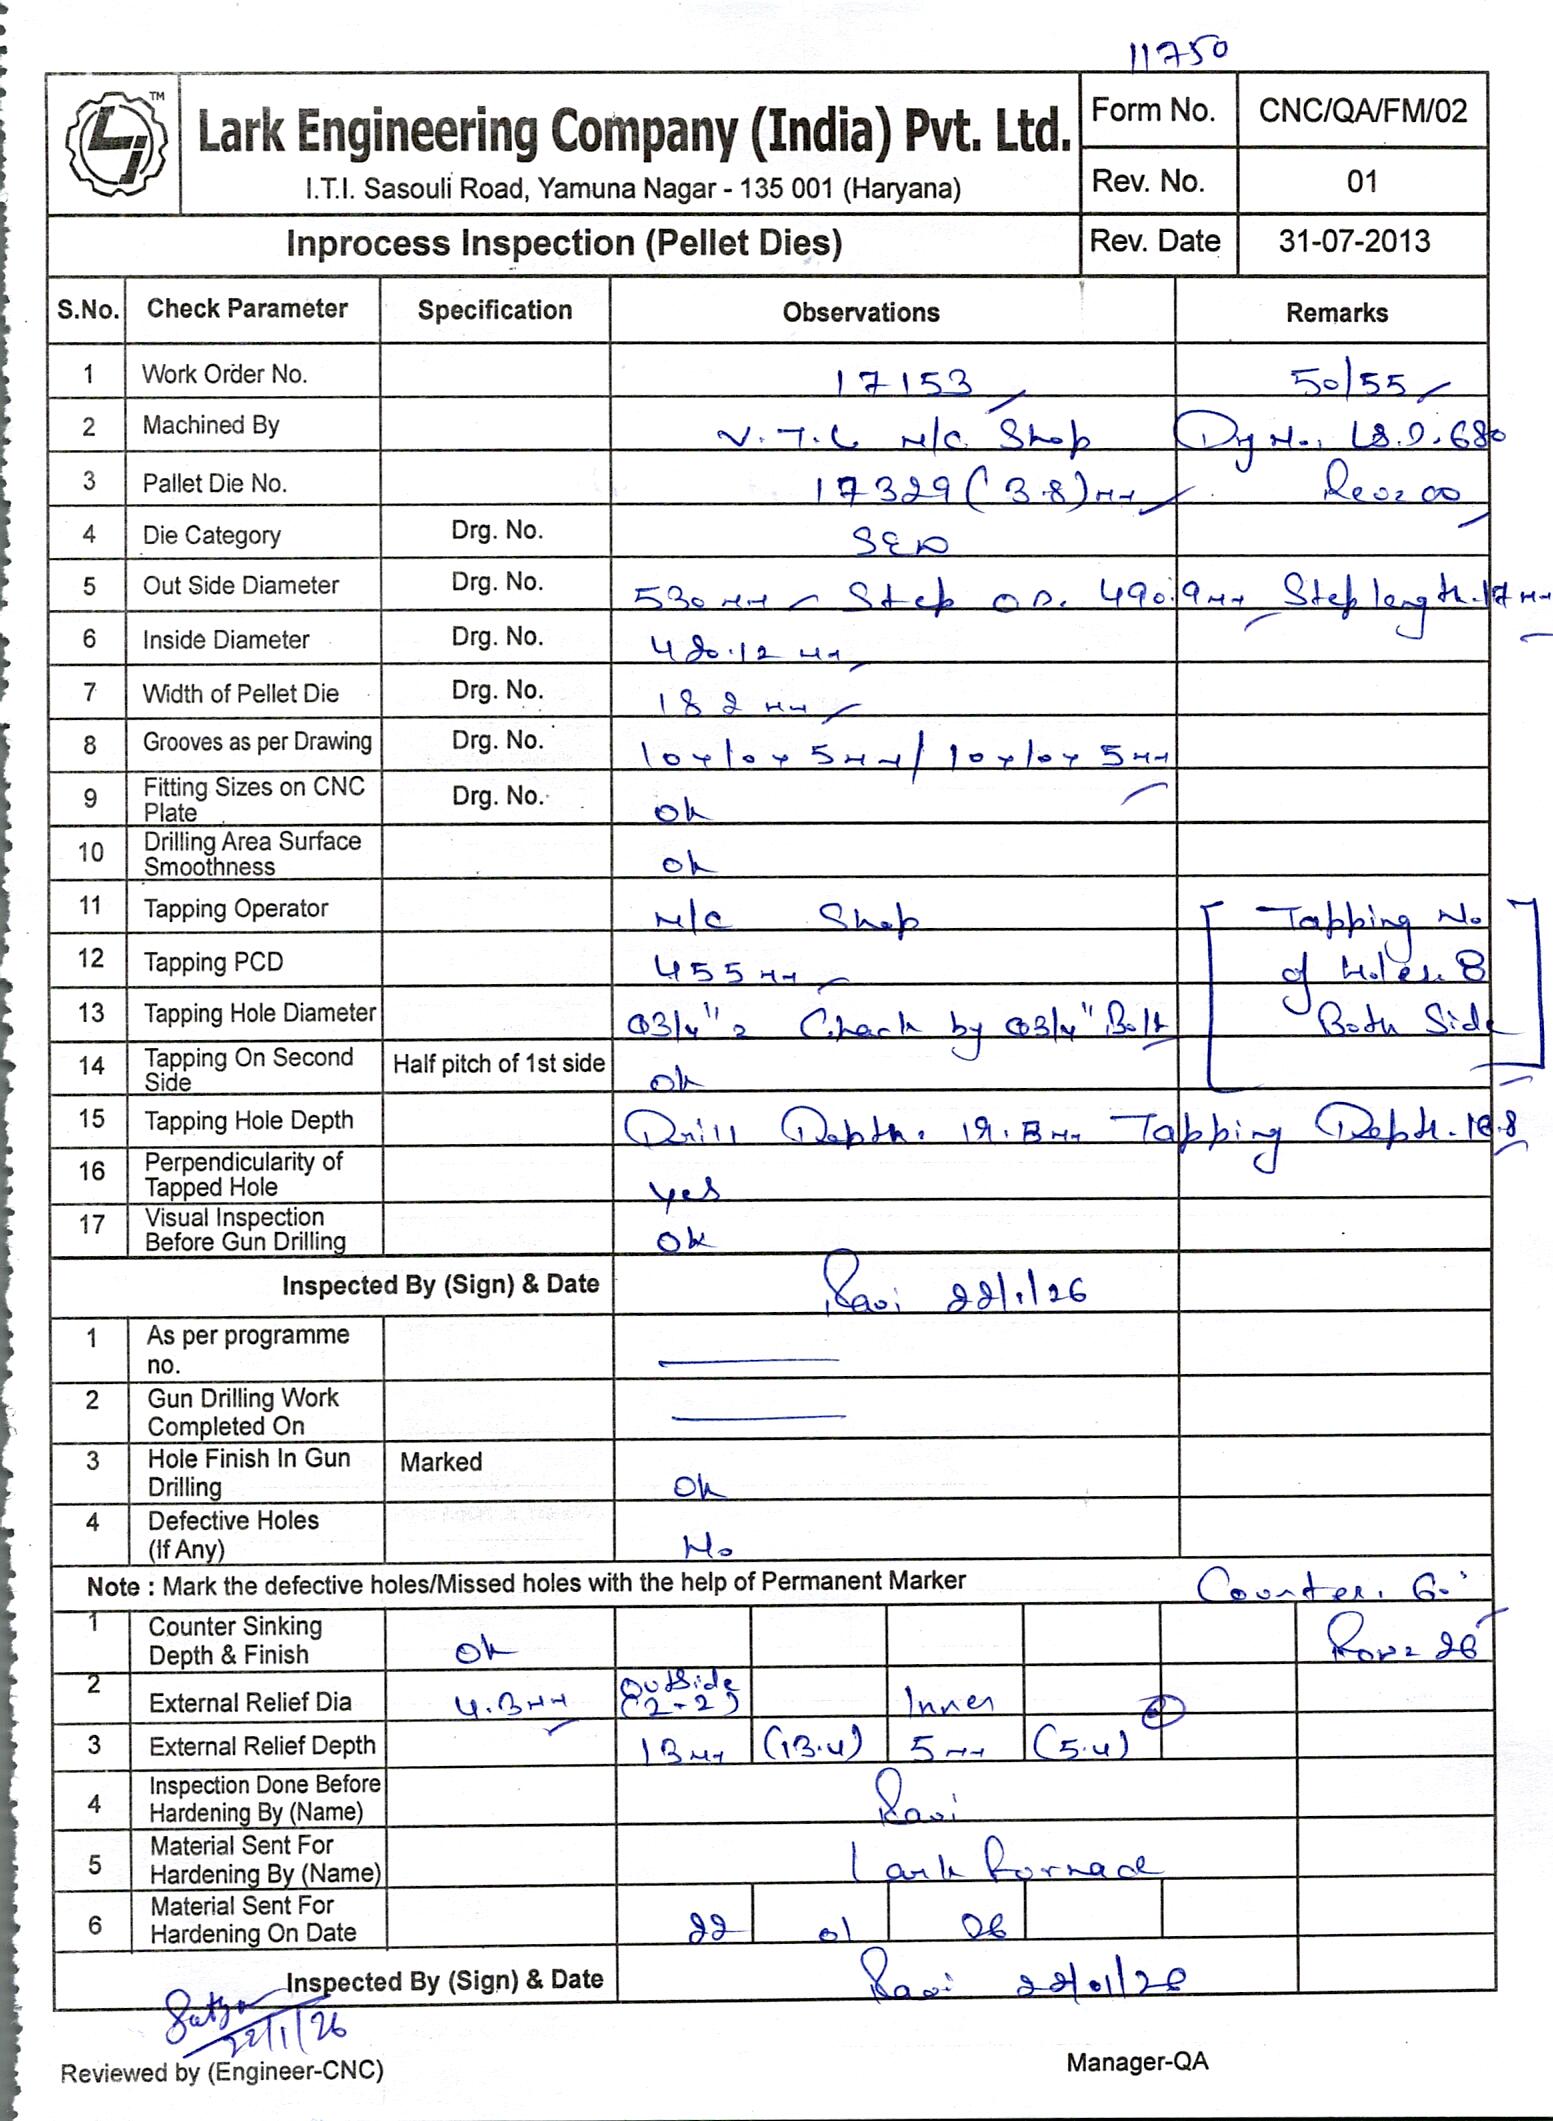 11750
TM
Lark Engineering Company (India) Pvt. Ltd.
I.T.I. Sasouli Road, Yamuna Nagar - 135 001 (Haryana)
Form No. CNC/QA/FM/02
Rev. No. 01
Inprocess Inspection (Pellet Dies) Rev. Date 31-07-2013
S.No. Check Parameter Specification Observations Remarks
1 Work Order No. 17153 50/55
2 Machined By V.T.L M/C Shop
3 Pallet Die No. 17329 (3.8) mm
4 Die Category Drg. No.
5 Out Side Diameter Drg. No. 530 mm Step OD. 490.9 mm Step length. 17 mm
6 Inside Diameter Drg. No. 420.12 mm
7 Width of Pellet Die Drg. No. 182 mm
8 Grooves as per Drawing Drg. No. 10x10x5mm/10x10x5mm
9 Fitting Sizes on CNC Plate Drg. No. ok
10 Drilling Area Surface Smoothness ok
11 Tapping Operator M/C Shop Tapping No
12 Tapping PCD 455 mm of Holes. 8
13 Tapping Hole Diameter Ø3/4" Check by Ø3/4" Bolt Both Side
14 Tapping On Second Side Half pitch of 1st side ok
15 Tapping Hole Depth Drill Depth. mm Tapping Depth.
16 Perpendicularity of Tapped Hole yes
17 Visual Inspection Before Gun Drilling ok
Inspected By (Sign) & Date Ravi 22/1/26
1 As per programme no.
2 Gun Drilling Work Completed On
3 Hole Finish In Gun Drilling Marked ok
4 Defective Holes (If Any) No
Note : Mark the defective holes/Missed holes with the help of Permanent Marker Counter.
1 Counter Sinking Depth & Finish ok
2 External Relief Dia 4.3mm Outside (2-2) Inner
3 External Relief Depth 13mm (13.4) 5mm (5.4)
4 Inspection Done Before Hardening By (Name) Ravi
5 Material Sent For Hardening By (Name) Lark Fornace
6 Material Sent For Hardening On Date 22 01 26
Inspected By (Sign) & Date Ravi 22/01/26
22/1/26
Reviewed by (Engineer-CNC) Manager-QA